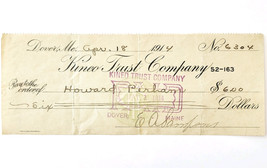 Dover, Me. Apr. 18 1914 No. 6304
Kineo Trust Company 52-163
Pay to the order of Howard Perham $6.00
Six Dollars
KINEO TRUST COMPANY
DOVER MAINE